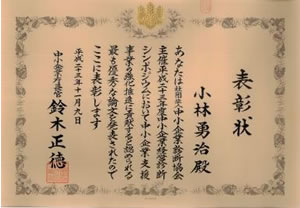 表彰状
小林勇治殿
あなたは社団法人中小企業診断協会
主催平成二十三年度中小企業経営診断
シンポジウムにおいて中小企業支援
事業の強化推進に貢献すると認められる
最も優秀な論文を発表されたので
ここに表彰します
平成二十三年十一月九日
中小企業庁長官
鈴木正徳